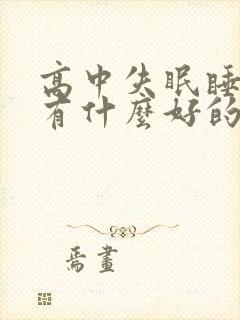 高中失眠睡
有什麼好的
焉畫